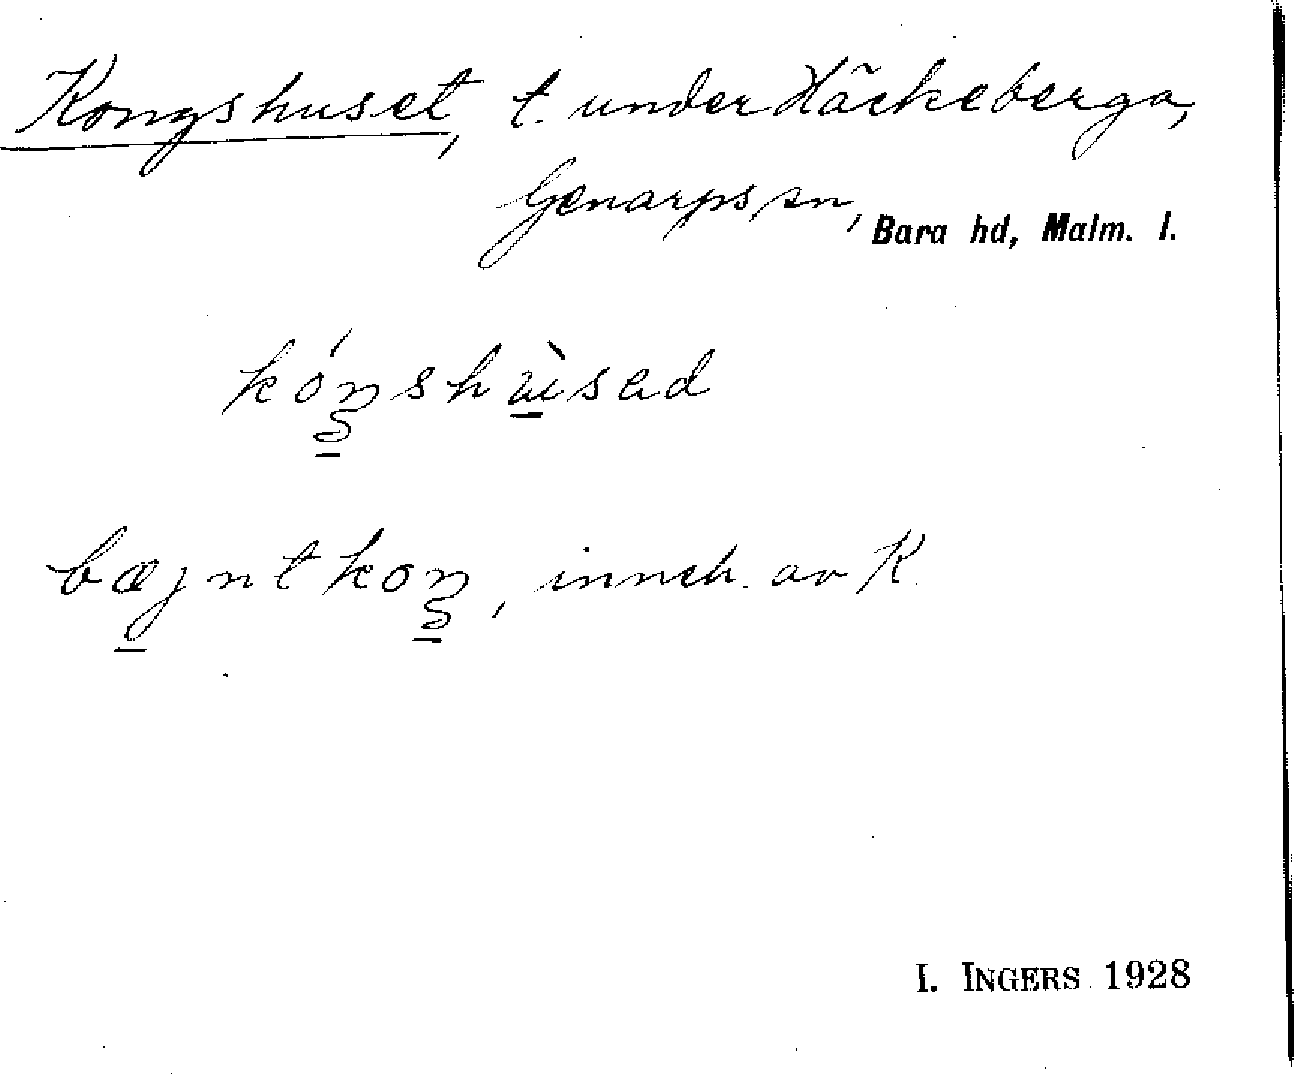 Kongshuset, t. under Häckeberga,
Genarps sn, Bara hd, Malm. l.
kóŋshùsad
bæjntkoŋ, inneh. av K.
I. INGERS 1928